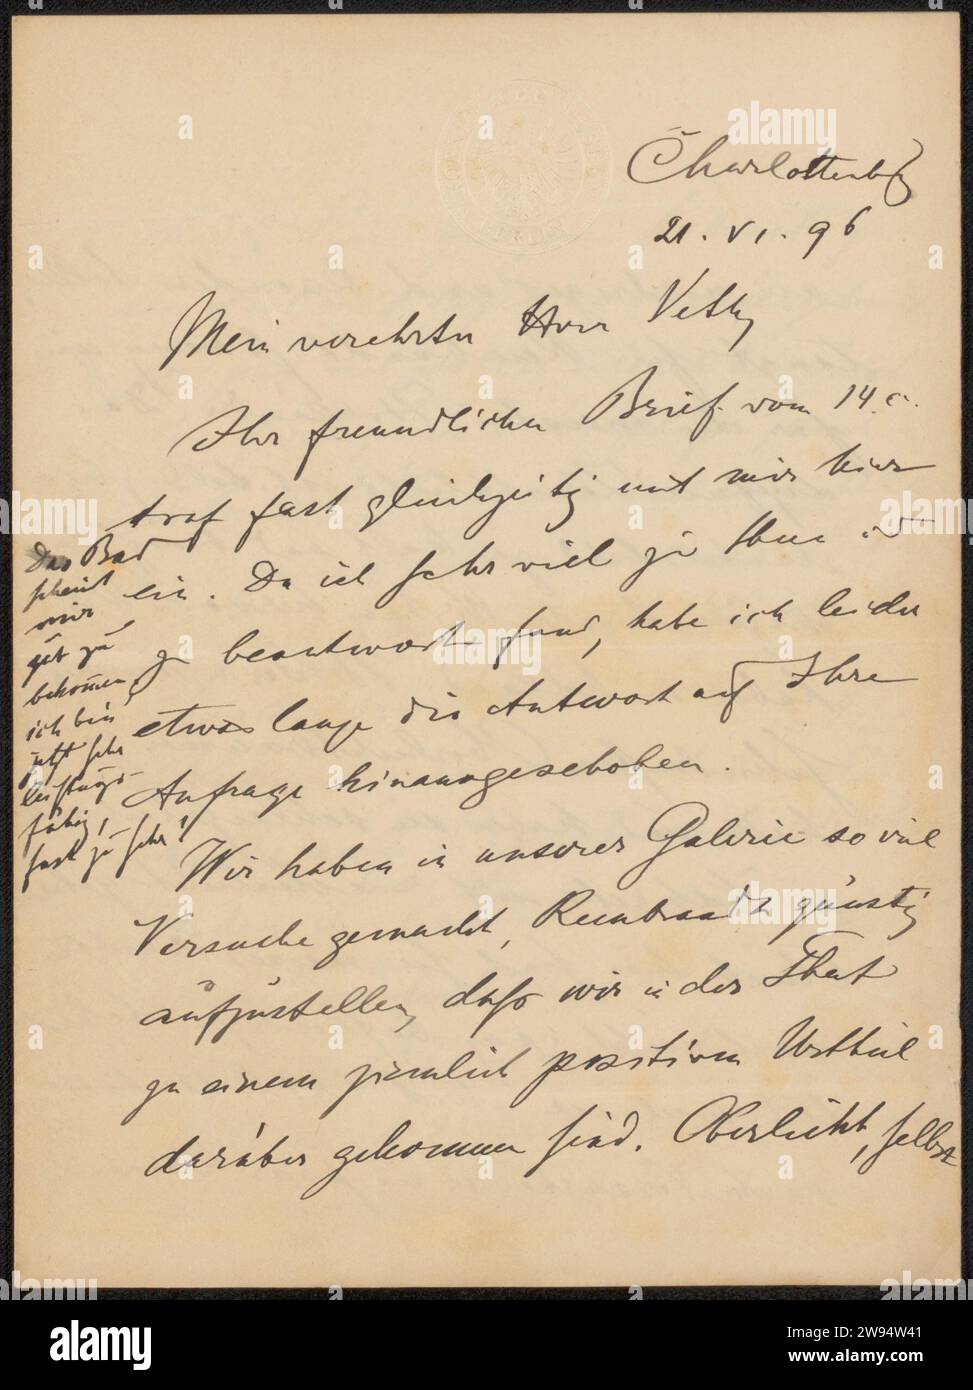 Charlottenbg
21. VI. 96
Mein verehrter Herr Veth,
Ihr freundlicher Brief vom 14. c.
traf fast gleichzeitig mit mir hier
ein. Da ich sehr viel zu thun u
zu beantworten fand, habe ich leider
etwas lange die Antwort auf Ihre
Anfrage hinausgeschoben.
Wir haben in unserer Galerie so viel
Versuche gemacht, Rembrandt günstig
aufzustellen, daß wir in der That
zu einem ziemlich positiven Urtheil
darüber gekommen sind. Oberlicht, selbst
Das Bad
scheint
mir
gut zu
bekommen,
ich bin
jetzt sehr
leistungs-
fähig,
fast zu sehr!
alamy
Image ID: 2N94W41
www.alamy.com